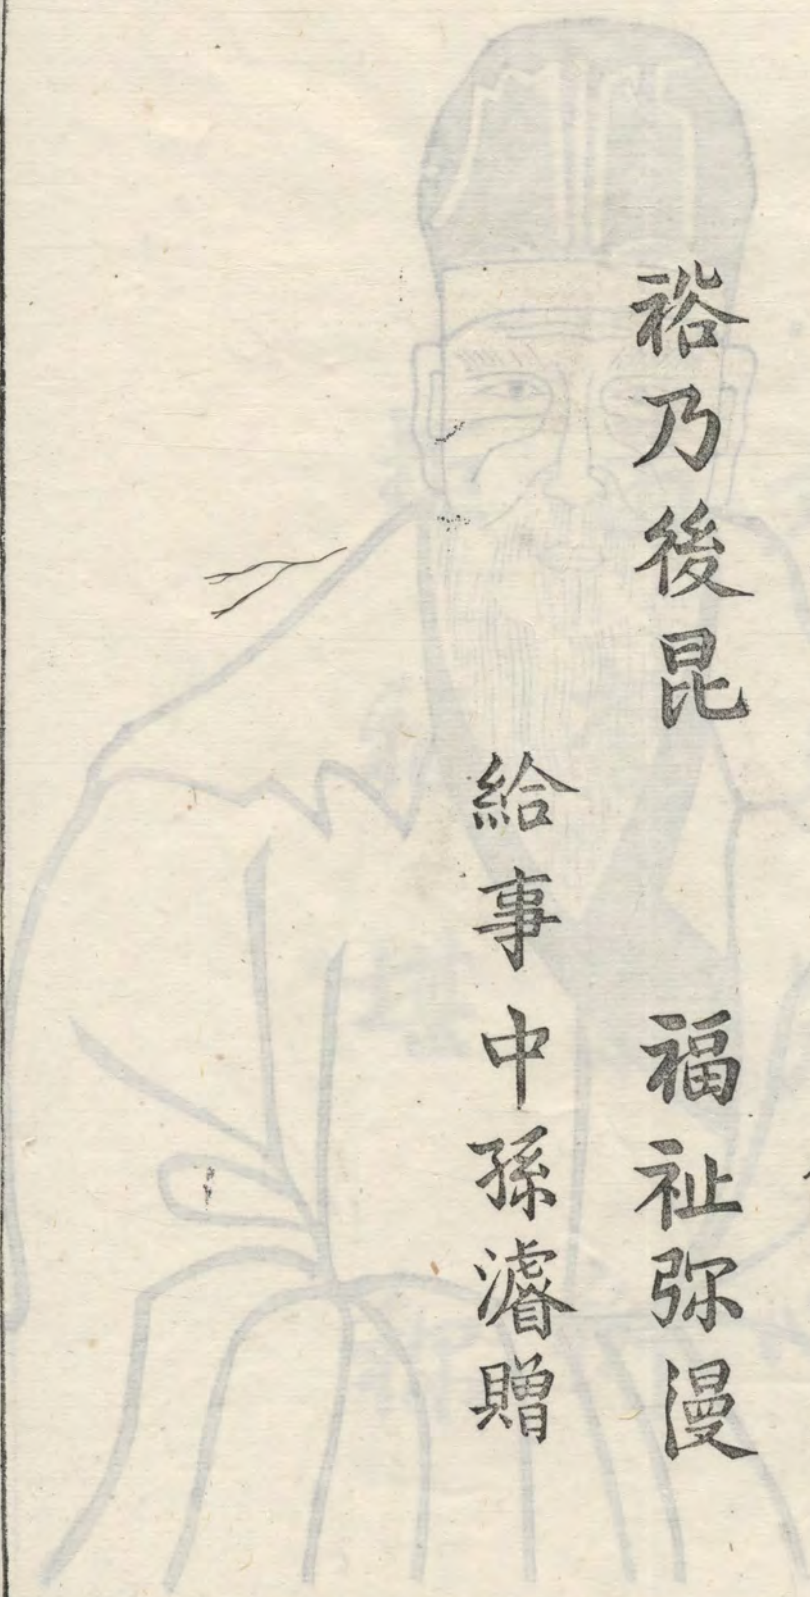 裕乃後昆　福祉弥漫
給事中孫濬贈